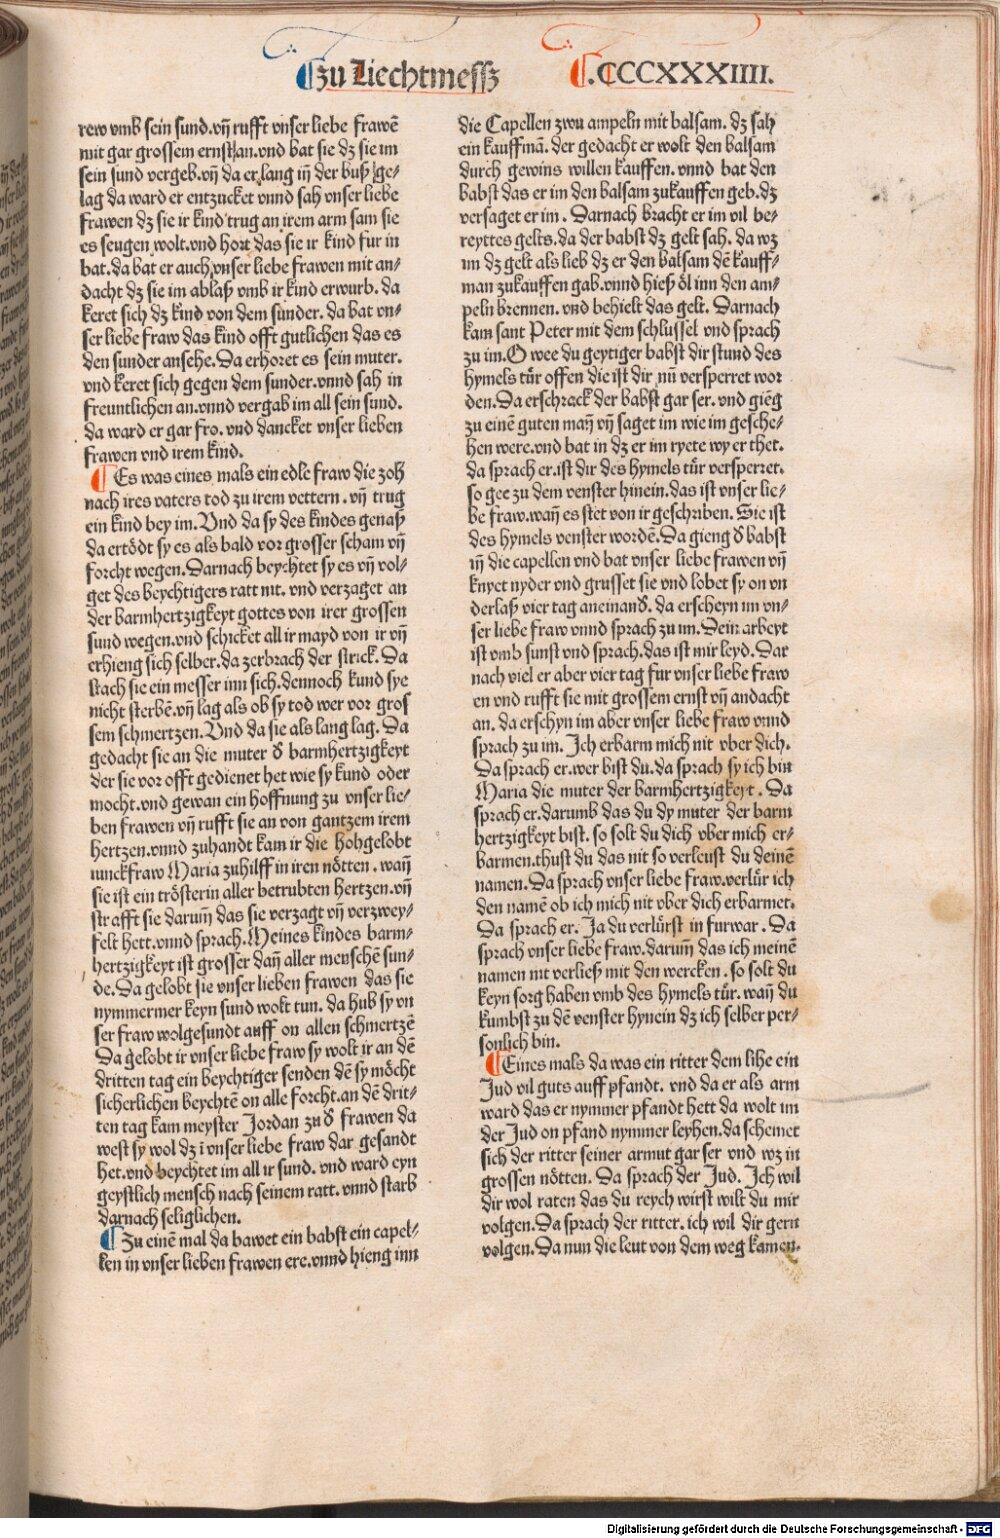 ¶zu Liechtmessz ¶.CCCXXXIIII.
rew vmb sein sund.vñ rufft vnser liebe frawẽ
mit gar grossem ernst an.vnd bat sie dz sie im
sein sund vergeb.vñ da er lang iñ der buß ge-
lag da ward er entzucket vnnd sah vnser liebe
frawen dz sie ir kind trug an irem arm sam sie
es seugen wolt.vnd hort das sie ir kind fur in
bat.da bat er auch vnser liebe frawen mit an-
dacht dz sie im ablaß vmb ir kind erwurb. da
keret sich dz kind von dem sunder. da bat vn-
ser liebe fraw das kind offt gutlichen das es
den sunder ansehe. Da erhoret es sein muter.
vnd keret sich gegen dem sunder.vnnd sah in
freuntlichen an.vnnd vergab im all sein sund.
da ward er gar fro. vnd dancket vnser lieben
frawen vnd irem kind.
¶ Es was eines mals ein edle fraw die zoh
nach ires vaters tod zu irem vettern . vñ trug
ein kind bey im. Vnd da sy des kindes genaß
da ertödt sy es als bald vor grosser scham vñ
forcht wegen. Darnach beychtet sy es vñ vol-
get des beychtigers ratt nit. vnd verzaget an
der barmhertzigkeyt gottes von irer grossen
sund wegen.vnd schicket all ir mayd von ir vñ
erhieng sich selber.da zerbrach der strick. Da
stach sie ein messer inn sich.dennoch kund sye
nicht sterbẽ.vñ lag als ob sy tod wer vor gros
sem schmertzen. Vnd da sie als lang lag. Da
gedacht sie an die muter d̕ barmhertzigkeyt
der sie vor offt gedienet het wie sy kund oder
mocht.vnd gewan ein hoffnung zu vnser lie-
ben frawen vñ rufft sie an von gantzem irem
hertzen.vnnd zuhandt kam ir die hohgelobt
iunckfraw Maria zuhilff in iren nötten . wañ
sie ist ein trösterin aller betrubten hertzen.vñ
strafft sie darum̃ das sie verzagt vñ verzwey-
felt hett.vnnd sprach. Meines kindes barm-
hertzigkeyt ist grosser dañ aller menschẽ sun-
de. Da gelobt sie vnser lieben frawen das sie
nymmermer keyn sund wolt tun. da hub sy vn
ser fraw wolgesundt auff on allen schmertzẽ
Da gelobt ir vnser liebe fraw sy wolt ir an dẽ
dritten tag ein beychtiger senden dẽ sy möcht
sicherlichen beychtẽ on alle forcht.an dẽ drit-
ten tag kam meyster Jordan zu d̕ frawen da
west sy wol dz ĩ vnser liebe fraw dar gesandt
het.vnd beychtet im all ir sund. vnd ward eyn
geystlich mensch nach seinem ratt. vnnd starb
darnach seliglichen.
¶ Zu einẽ mal da bawet ein babst ein capel-
len in vnser lieben frawen ere.vnnd hieng inn
die Capellen zwu ampeln mit balsam. dz sah
ein kauffmã. der gedacht er wolt den balsam
durch gewins willen kauffen. vnnd bat den
babst das er im den balsam zukauffen geb.dz
versaget er im . Darnach bracht er im vil be-
reyttes gelts.da der babst dz gelt sah. da wz
im dz gelt als lieb dz er den balsam dẽ kauff-
man zukauffen gab.vnnd hieß öl inn den am-
peln brennen. vnd behielt das gelt. Darnach
kam sant Peter mit dem schlussel vnd sprach
zu im.O wee du geytiger babst dir stund des
hymels tür offen die ist dir nũ versperret wor
den.Da erschrack der babst gar ser. vnd gieng
zu einẽ guten mañ vñ saget im wie im gesche-
hen were.vnd bat in dz er im ryete wy er thet.
da sprach er.ist dir des hymels tür versperret.
so gee zu dem venster hinein.das ist vnser lie-
be fraw.wañ es stet von ir geschriben. Sie ist
des hymels venster wordẽ. Da gieng d̕ babst
iñ die capellen vnd bat vnser liebe frawen vñ
knyet nyder vnd grusset sie vnd lobet sy on vn
derlaß vier tag aneinand̕. da erscheyn im vn-
ser liebe fraw vnnd sprach zu im. Dein arbeyt
ist vmb sunst vnd sprach.das ist mir leyd. Dar
nach viel er aber vier tag fur vnser liebe fraw
en vnd rufft sie mit grossem ernst vñ andacht
an. da erschyn im aber vnser liebe fraw vnnd
sprach zu im. Ich erbarm mich nit vber dich.
Da sprach er.wer bist du.da sprach sy ich bin
Maria die muter der barmhertzigkeyt . Da
sprach er.darumb das du dy muter der barm
hertzigkeyt bist. so solt du dich vber mich er-
barmen.thust du das nit so verleust du deinẽ
namen.Da sprach vnser liebe fraw.verlür ich
den namẽ ob ich mich nit vber dich erbarmet.
Da sprach er. Ja du verlürst in furwar. Da
sprach vnser liebe fraw.darum̃ das ich meinẽ
namen nit verließ mit den wercken . so solt du
keyn sorg haben vmb des hymels tür. wañ du
kumbst zu dẽ venster hynein dz ich selber per-
sonlich bin.
¶ Eines mals da was ein ritter dem lihe ein
Jud vil guts auff pfandt. vnd da er als arm
ward das er nymmer pfandt hett da wolt im
der Jud on pfand nymmer leyhen.da schemet
sich der ritter seiner armut gar ser vnd wz in
grossen nötten. Da sprach der Jud. Ich wil
dir wol raten das du reych wirst wilt du mir
volgen.Da sprach der ritter. ich wil dir gern
volgen.Da nun die leut von dem weg kamen.
Digitalisierung gefördert durch die Deutsche Forschungsgemeinschaft - DFG